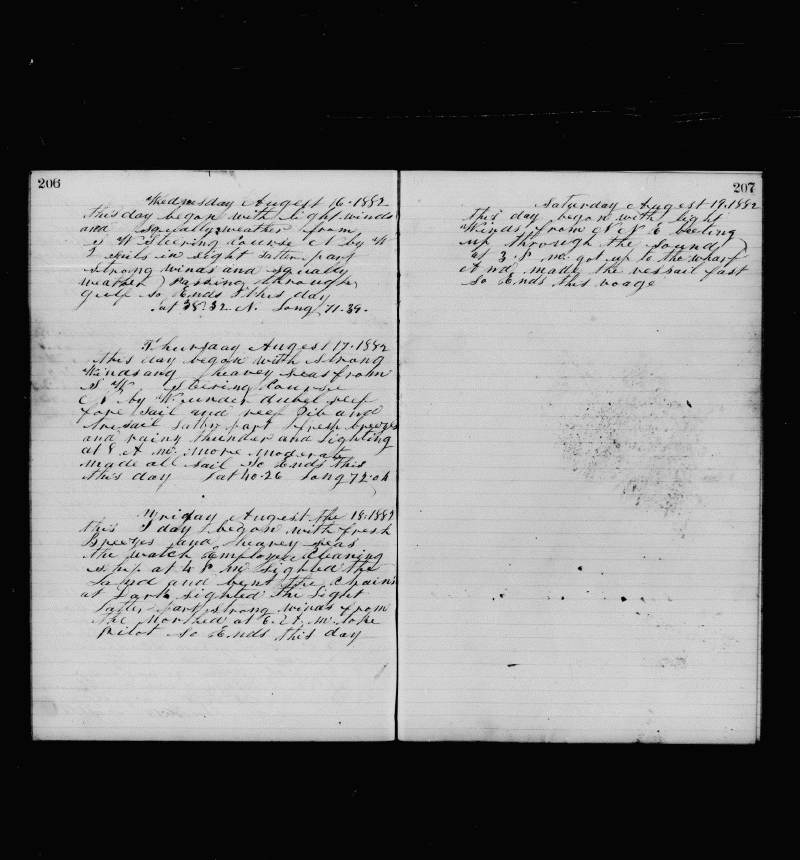 206
Wednesday Augest 16. 1882
this day began with light winds
and squally weather from
S W Steering Course N by W
2 sails in sight latter part
strong winds and squally
weather Passing through
gulf so Ends this day
Lat 38.32 N. Long 71.39.
Thursday Augest 17. 1882
this day began with Strong
Winds and heavey seas from
S W Steering Course
N by W under dubel reef
fore sail and reef Jib and
trisail latter part fresh breezes
and rainy thunder and Lighting
at 8 A M more moderate
made all sail So Ends this
this day Lat 40.26 Long 72.04
Friday Augest the 18. 1882
this day began with fresh
Breezes and heavey seas
the watch Employed Cleaning
ship at 4 P M sighted the
Land and bent the Chains
at Dark sighted the Light
latter part strong winds from
the Northed at 6 A M toke
Pilot so Ends this day
207
Saturday Augest 19. 1882
this day began with light
Winds from N N E beeting
up through the sound
at 3 P M got up to the wharf
And made the vessail fast
So Ends this voage